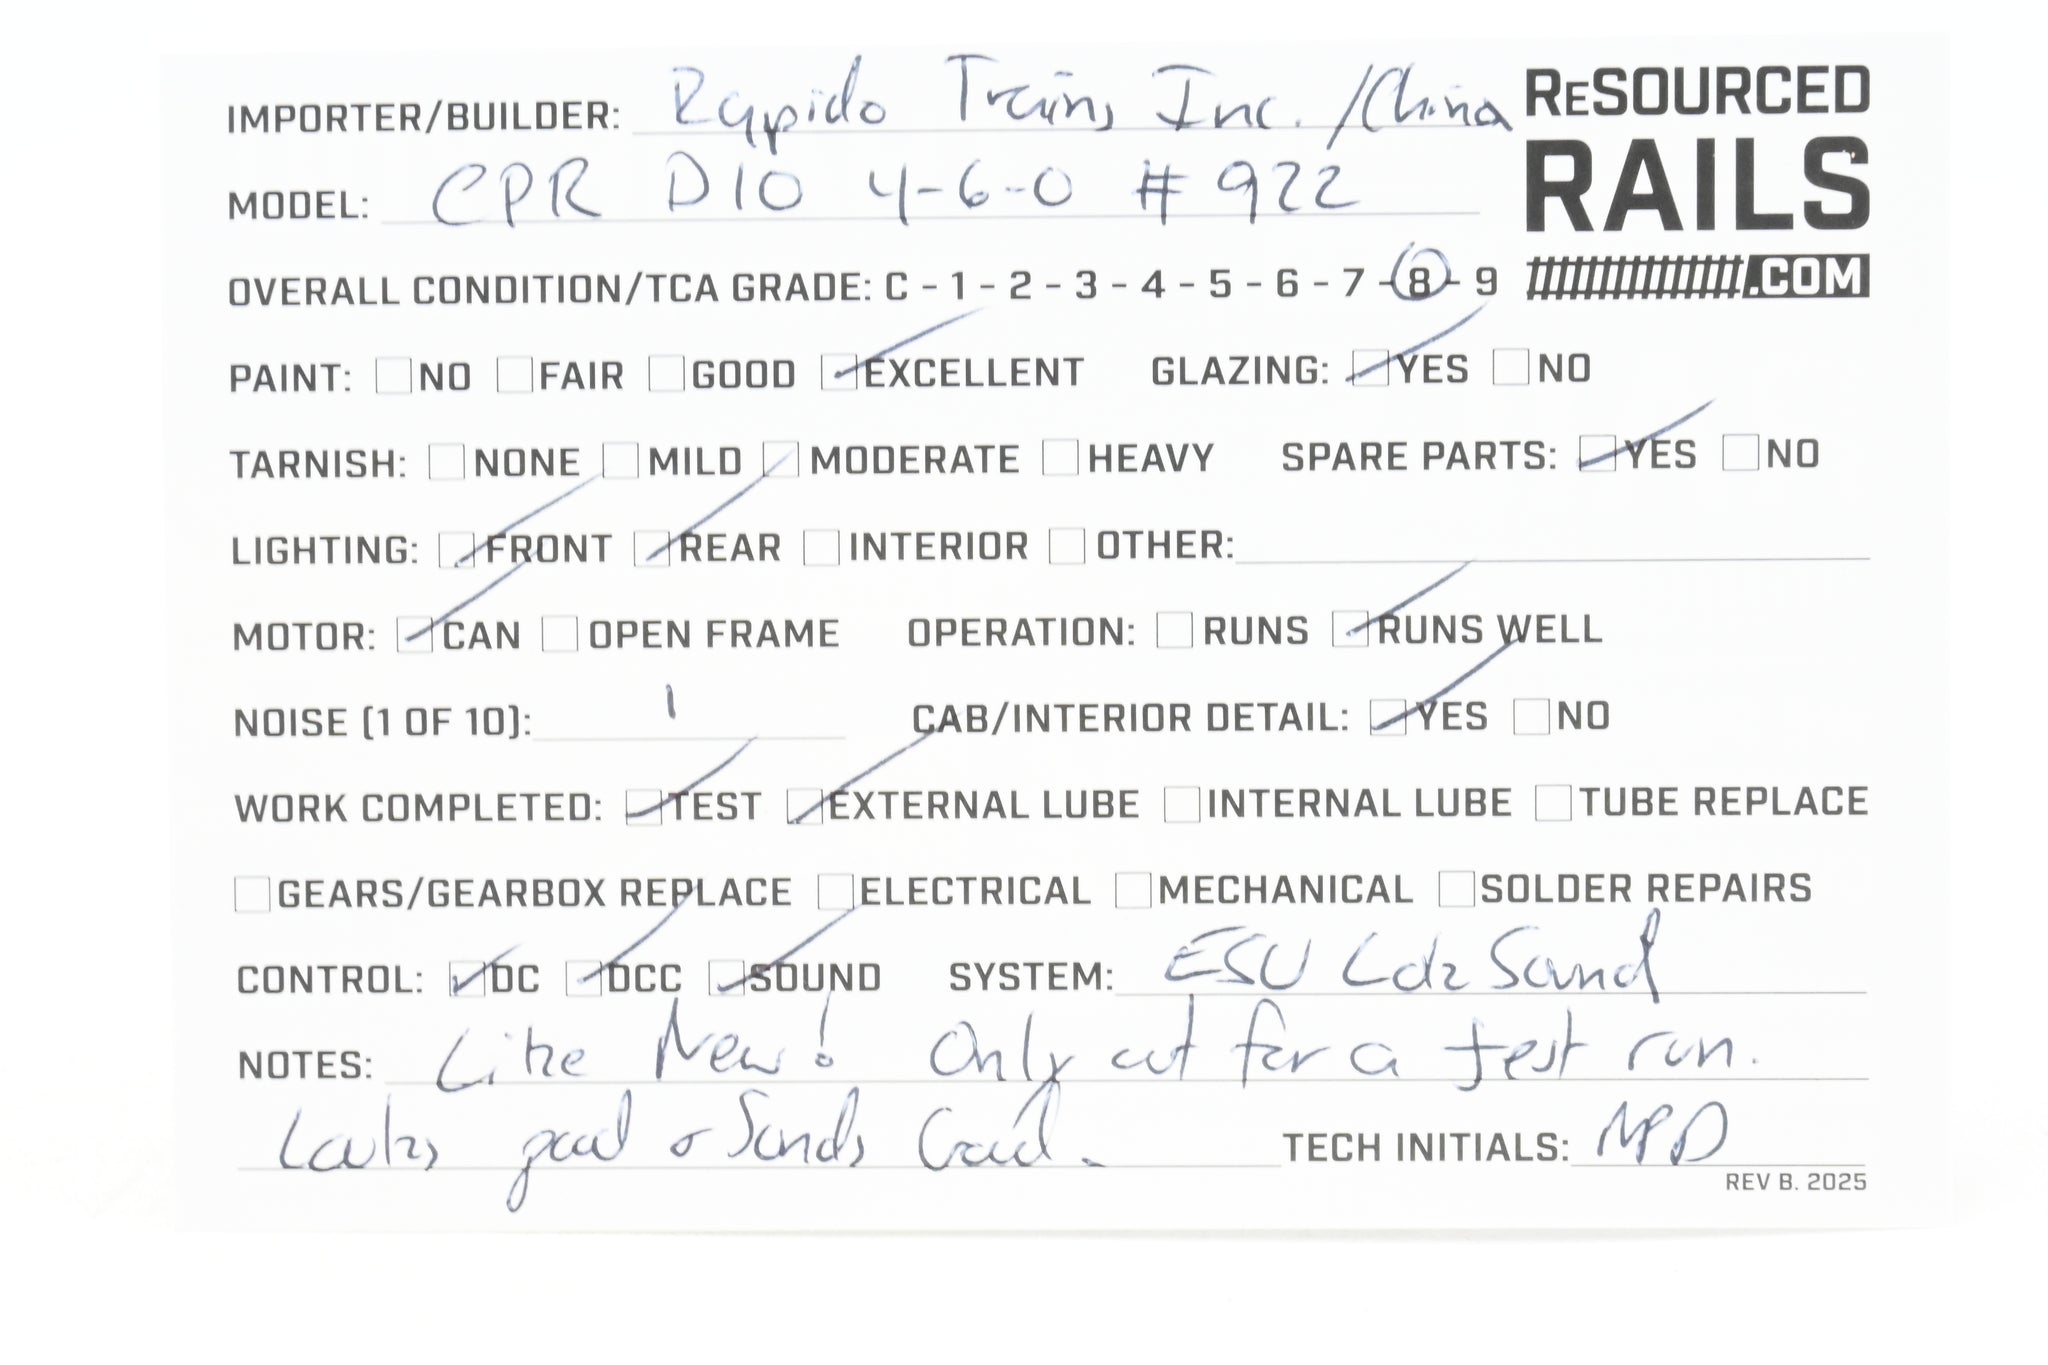 IMPORTER/BUILDER: Rapido Trains Inc. /China
ReSOURCED
RAILS
.COM
MODEL: CPR D10 4-6-0 #922
OVERALL CONDITION/TCA GRADE: C - 1 - 2 - 3 - 4 - 5 - 6 - 7 - 8 - 9
PAINT: NO FAIR GOOD EXCELLENT GLAZING: YES NO
TARNISH: NONE MILD MODERATE HEAVY SPARE PARTS: YES NO
LIGHTING: FRONT REAR INTERIOR OTHER:
MOTOR: CAN OPEN FRAME OPERATION: RUNS RUNS WELL
NOISE (1 OF 10): 1 CAB/INTERIOR DETAIL: YES NO
WORK COMPLETED: TEST EXTERNAL LUBE INTERNAL LUBE TUBE REPLACE
GEARS/GEARBOX REPLACE ELECTRICAL MECHANICAL SOLDER REPAIRS
CONTROL: DC DCC SOUND SYSTEM: ESU Lok Sound
NOTES: Like New! Only out for a test run.
Looks good & Sounds Good. TECH INITIALS: MPD
REV B. 2025